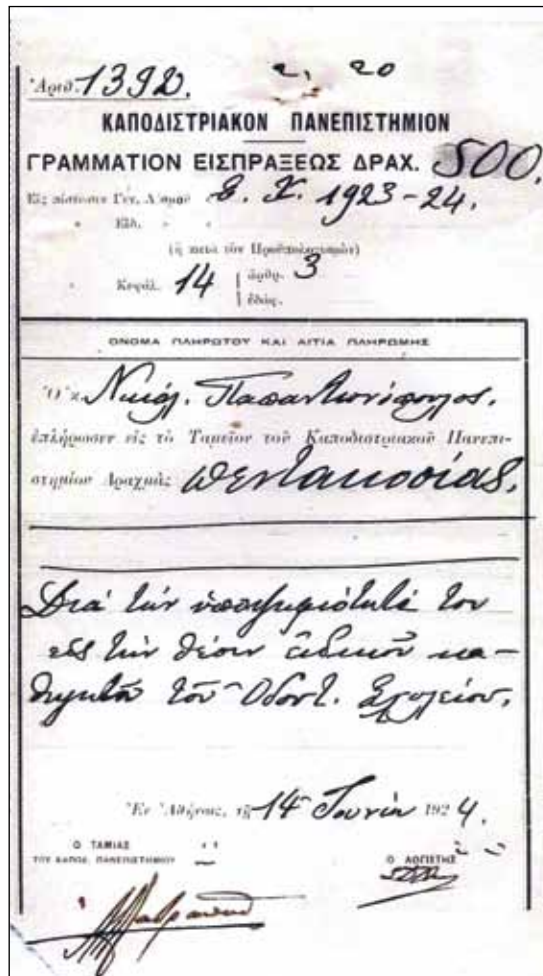 Ἀριθ. 1392. 2. 20
ΚΑΠΟΔΙΣΤΡΙΑΚΟΝ ΠΑΝΕΠΙΣΤΗΜΙΟΝ
ΓΡΑΜΜΑΤΙΟΝ ΕΙΣΠΡΑΞΕΩΣ ΔΡΑΧ. 500.
Εἰς πίστωσιν Γεν. Λ/σμοῦ Ε. Χ. 1923-24.
» Εἰδ. » »
(ἢ κατὰ τὸν Προϋπολογισμὸν)
» Κεφάλ. 14 ἄρθρ. 3
ἐδάφ.
ΟΝΟΜΑ ΠΛΗΡΩΤΟΥ ΚΑΙ ΑΙΤΙΑ ΠΛΗΡΩΜΗΣ
Ὁ κ. Νικόλ. Παπαντωνόπουλος.
ἐπλήρωσεν εἰς τὸ Ταμεῖον τοῦ Καποδιστριακοῦ Πανεπι-
στημίου Δραχμὰς πεντακοσίας.
Διὰ τὴν ὑποψηφιότητά του
εἰς τὴν θέσιν εἰδικοῦ κα-
θηγητοῦ τοῦ Ὀδοντ. Σχολείου.
Ἐν Ἀθήναις, τῇ 14 Ἰουνίου 1924.
Ο ΤΑΜΙΑΣ Ο ΛΟΓΙΣΤΗΣ
ΤΟΥ ΚΑΠΟΔ. ΠΑΝΕΠΙΣΤΗΜΙΟΥ